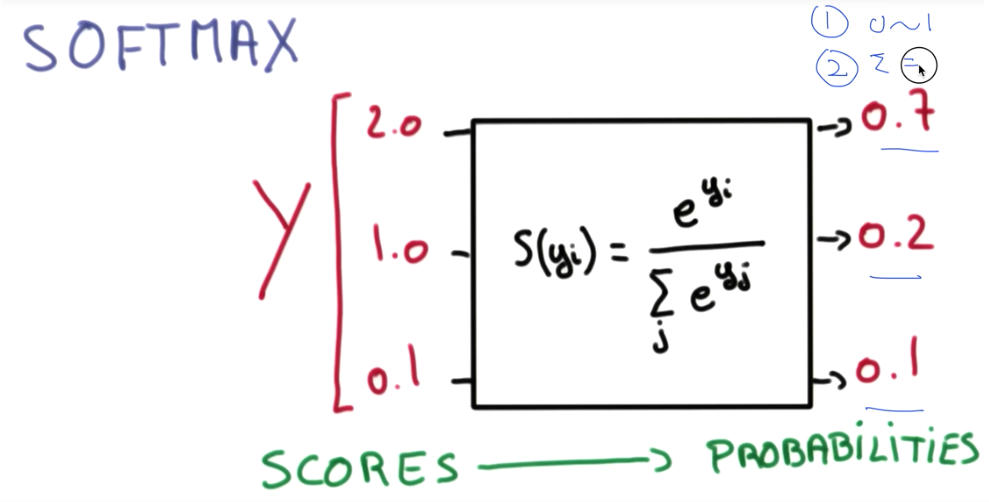 SOFTMAX
① 0~1
② Σ =
Y
2.0 → 0.7
1.0 S(yi) = e^yi / Σj e^yj → 0.2
0.1 → 0.1
SCORES → PROBABILITIES